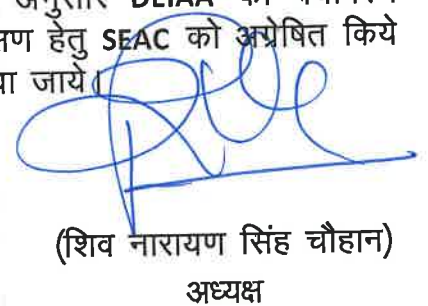 अनुसार DEIAA
हेतु SEAC को अग्रेषित किये
जाये।
(शिव नारायण सिंह चौहान)
अध्यक्ष